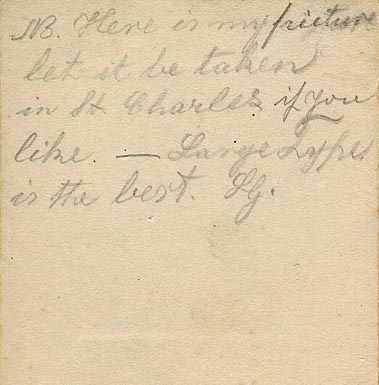 NB. Here is my picture
let it be taken
in St Charles if you
like. — Large Type
is the best. SG.